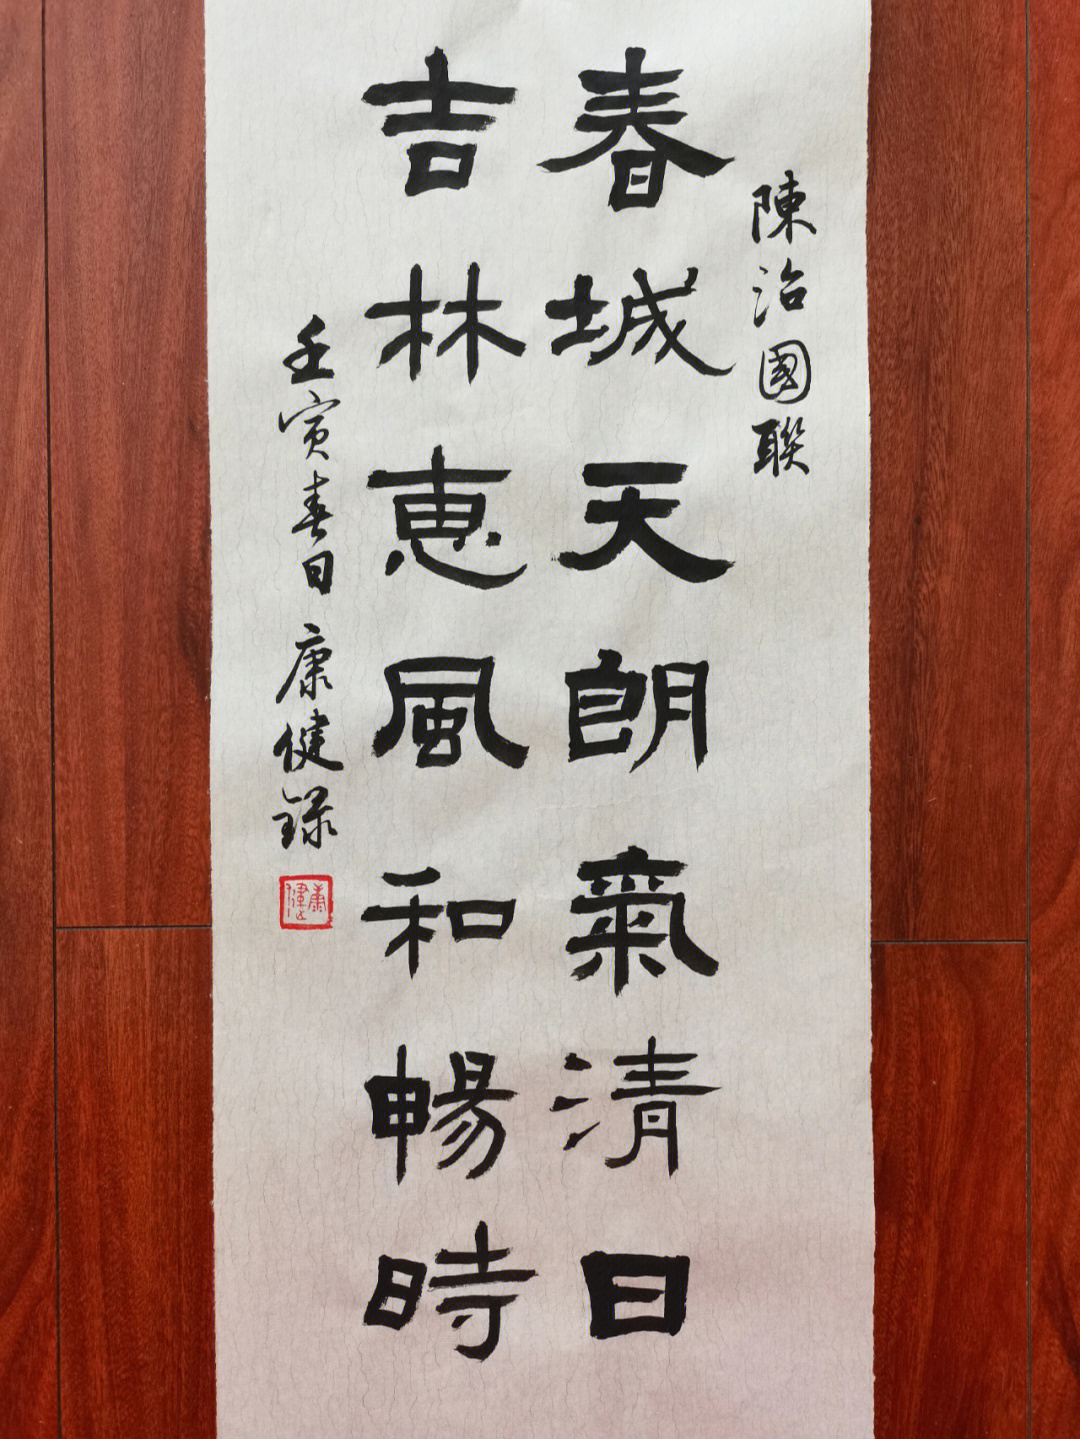 陳治國聯
春城天朗氣清日
吉林惠風和暢時
壬寅春日康健録